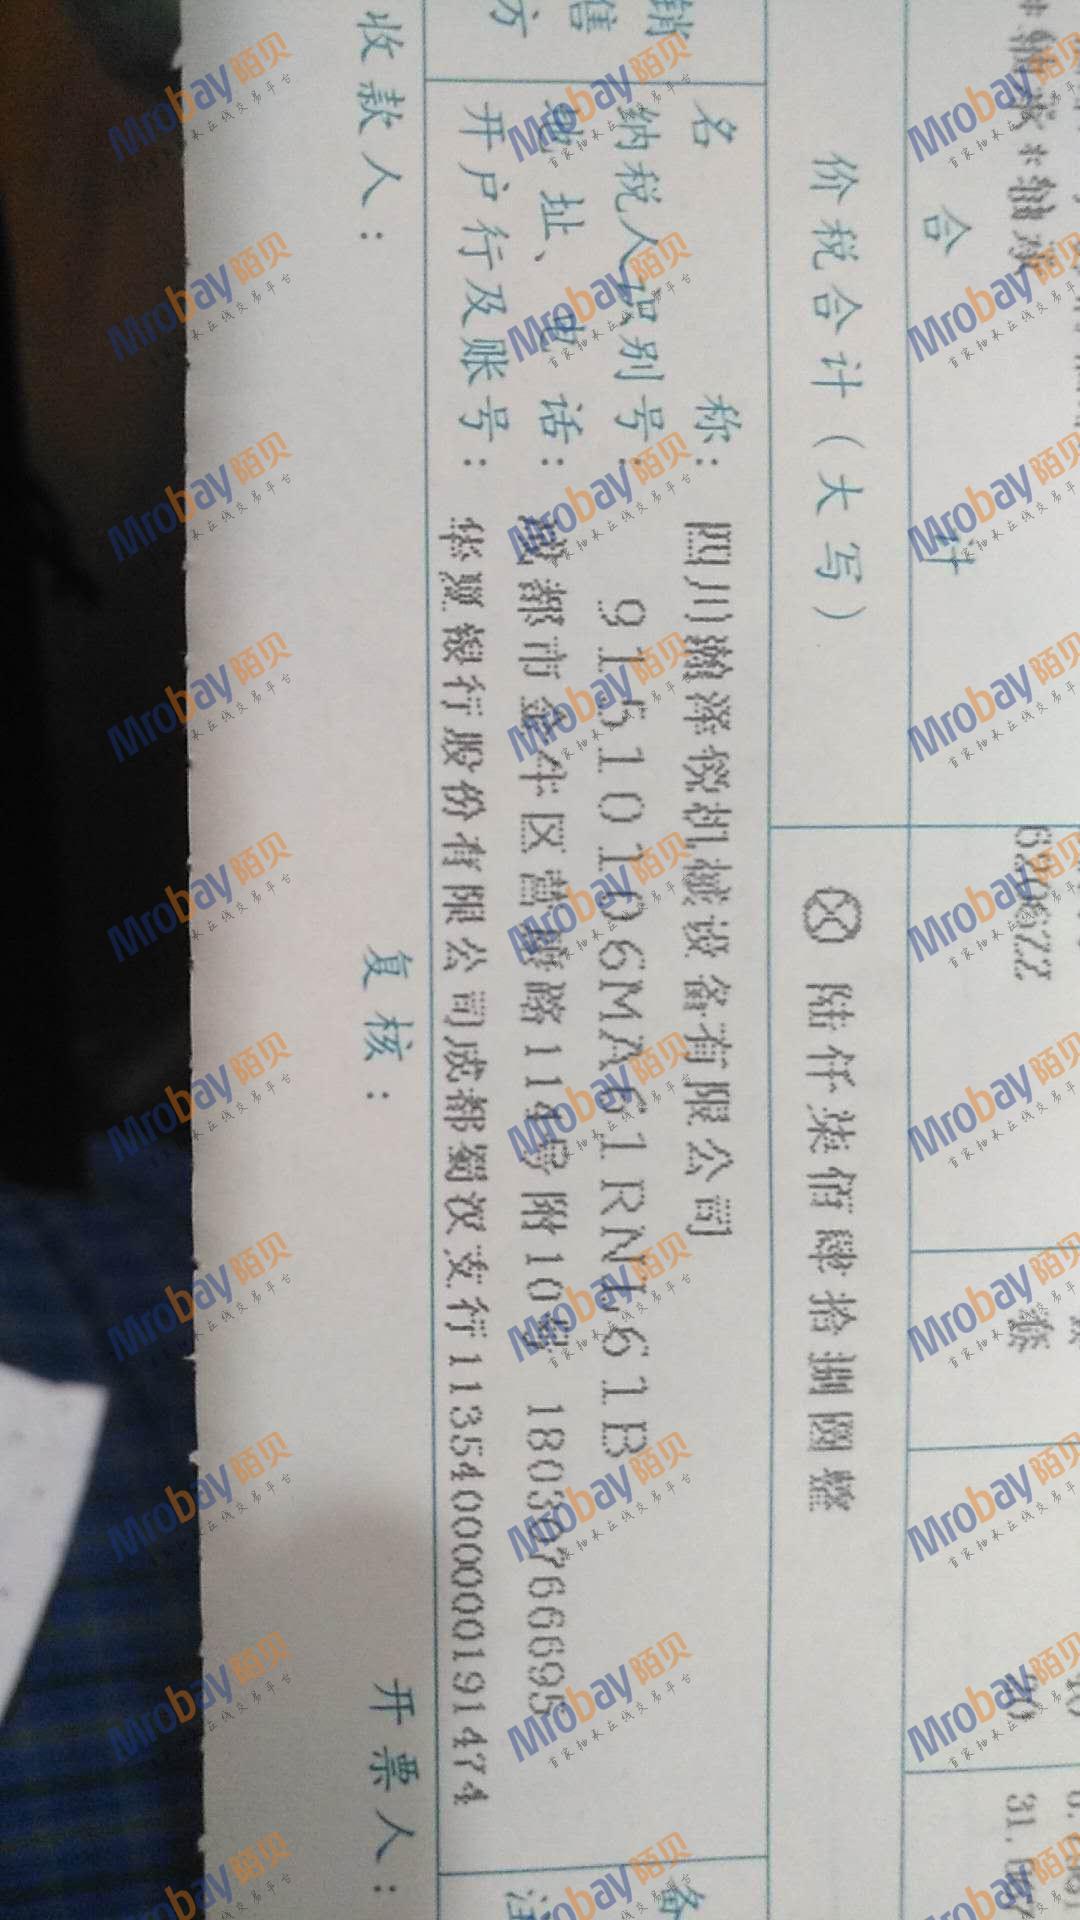 合 计
价税合计（大写） ⊗ 陆仟柒佰肆拾捌圆整
销售方
名 称：四川瀚泽锐机械设备有限公司
纳税人识别号：91510106MA61RNL61B
地址、电话：成都市金牛区营 路114号附10号 18030766695
开户行及账号：华夏银行股份有限公司成都蜀汉支行11354000000191474
备注
收款人： 复核： 开票人：
Mrobay陌贝
首家轴承在线交易平台